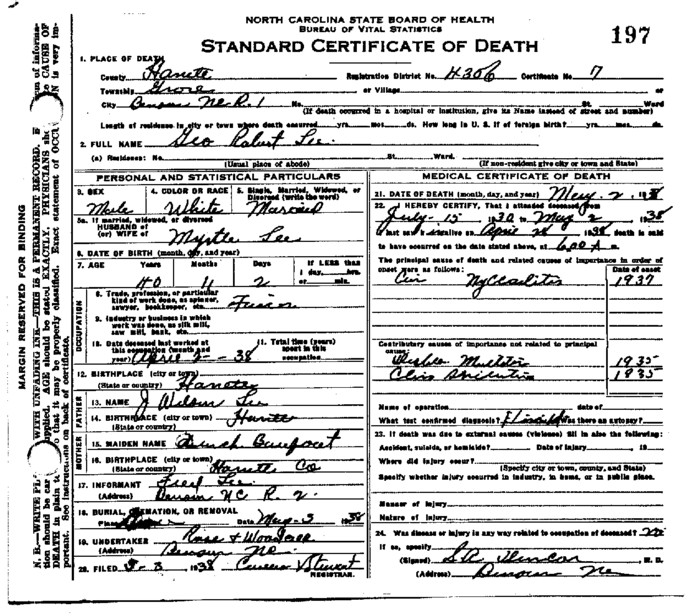 NORTH CAROLINA STATE BOARD OF HEALTH
BUREAU OF VITAL STATISTICS
STANDARD CERTIFICATE OF DEATH
197
1. PLACE OF DEATH
County Harnett Registration District No. 4306 Certificate No. 7
Township Grove or Village or
City Benson N.C. R. 1 No. St. Ward
(If death occurred in a hospital or institution, give its Name instead of street and number)
Length of residence in city or town where death occurred yrs. mos. ds. How long in U. S. if of foreign birth? yrs. mos. ds.
2. FULL NAME Geo Robert Lee
(a) Residence: No. St. Ward.
(Usual place of abode) (If non-resident give city or town and State)
PERSONAL AND STATISTICAL PARTICULARS
3. SEX 4. COLOR OR RACE 5. Single, Married, Widowed, or Divorced (write the word)
Male White Married
5a. If married, widowed, or divorced
HUSBAND of
(or) WIFE of Myrtle Lee
6. DATE OF BIRTH (month, day, and year)
7. AGE Years Months Days If LESS than
1 day, hrs.
or min.
40 11 2
OCCUPATION
8. Trade, profession, or particular
kind of work done, as spinner,
sawyer, bookkeeper, etc.
9. Industry or business in which
work was done, as silk mill,
saw mill, bank, etc.
10. Date deceased last worked at
this occupation (month and
year) April 2 - 38
11. Total time (years)
spent in this
occupation
12. BIRTHPLACE (city or town) Harnett
(State or country)
FATHER
13. NAME J Wilson Lee
14. BIRTHPLACE (city or town) Harnett
(State or country)
MOTHER
15. MAIDEN NAME Barefoot
16. BIRTHPLACE (city or town)
(State or country) Harnett Co
17. INFORMANT Fred Lee
(Address) Benson NC R. 2.
18. BURIAL, CREMATION, OR REMOVAL
Place Date May 3 1938
19. UNDERTAKER Rose & Woodall
(Address) Benson NC
20. FILED 5-3, 1938 Stewart
REGISTRAR.
MEDICAL CERTIFICATE OF DEATH
21. DATE OF DEATH (month, day, and year) May 2, 1938
22. I HEREBY CERTIFY, That I attended deceased from
July - 15 1930 to May 2 1938
I last saw h alive on April 28 1938 death is said
to have occurred on the date stated above, at 6:00 A m.
The principal cause of death and related causes of importance in order of
onset were as follows: Date of onset
1937
Contributory causes of importance not related to principal
cause:
1935
1935
Name of operation date of
What test confirmed diagnosis? Was there an autopsy?
23. If death was due to external causes (violence) fill in also the following:
Accident, suicide, or homicide? Date of injury 19
Where did injury occur?
(Specify city or town, county, and State)
Specify whether injury occurred in industry, in home, or in public place.
Manner of injury
Nature of injury
24. Was disease or injury in any way related to occupation of deceased? No
If so, specify
(Signed) M. D.
(Address) Benson NC
MARGIN RESERVED FOR BINDING